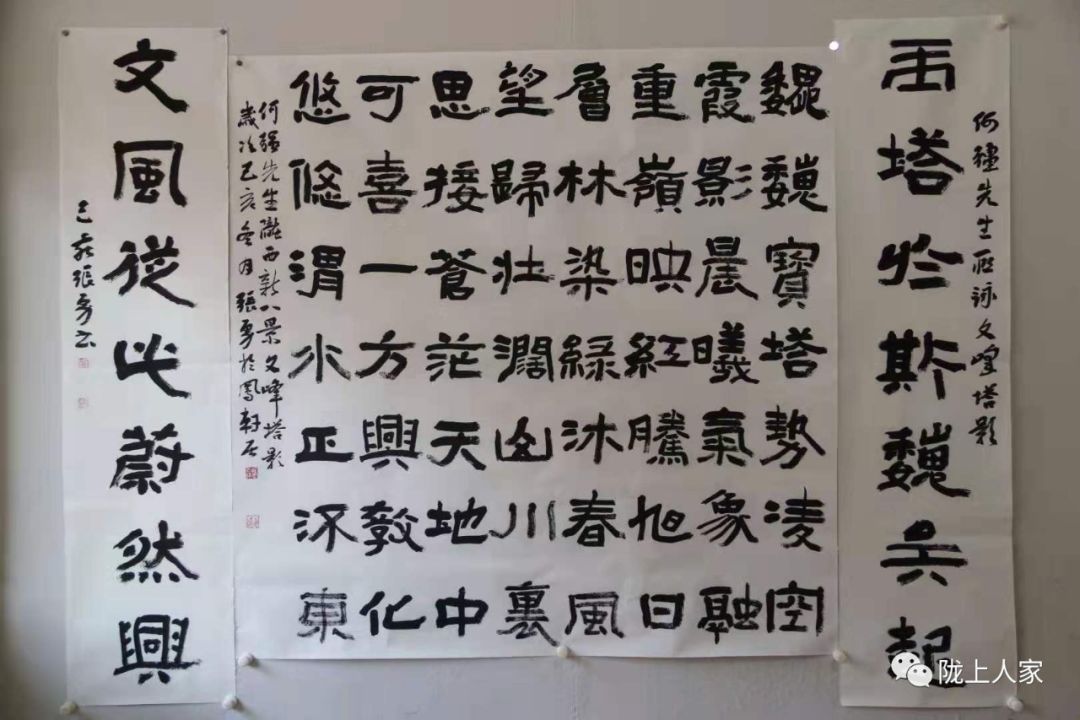 何強先生所詠文峰塔影
玉塔於斯巍矣起
巍巍寶塔勢凌空
霞影晨曦氣象融
重嶺映紅騰旭日
層林染綠沐春風
望歸壯闊山川裏
思接蒼茫天地中
可喜一方興教化
悠悠渭水正流東
何強先生隴西新八景文峰塔影
歲次己亥冬月張勇於鳳軒居
文風從此蔚然興
己亥張勇書
陇上人家